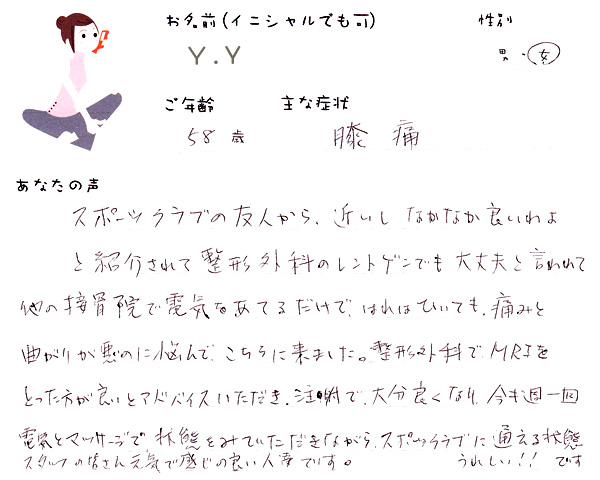 お名前(イニシャルでも可) 性別
Y.Y 男・女
ご年齢 主な症状
58歳 膝痛
あなたの声
スポーツクラブの友人から、近いし なかなか良いわよ
と紹介されて 整形外科のレントゲンでも 大丈夫と言われて
他の接骨院で電気をあてるだけで、はれはひいても、痛みと
曲がりが悪のに悩んで、こちらに来ました。整形外科で MRIを
とった方が良いとアドバイスいただき、注射で、大分良くなり、今も週一回
電気とマッサージで 状態をみていただきながら、スポーツクラブに 通える状態
スタッフの皆さん元気で感じの良い人達です。 うれしい!! です